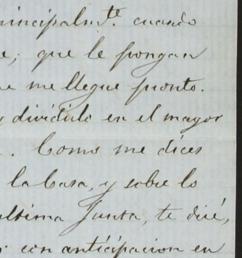 rincipalmte. cuando
e; que le pongan
ue me llegue pronto.
y dividido en el mayor
. Como me dices
la Casa, y sobre lo
ultima Junta, te diré,
con anticipacion en